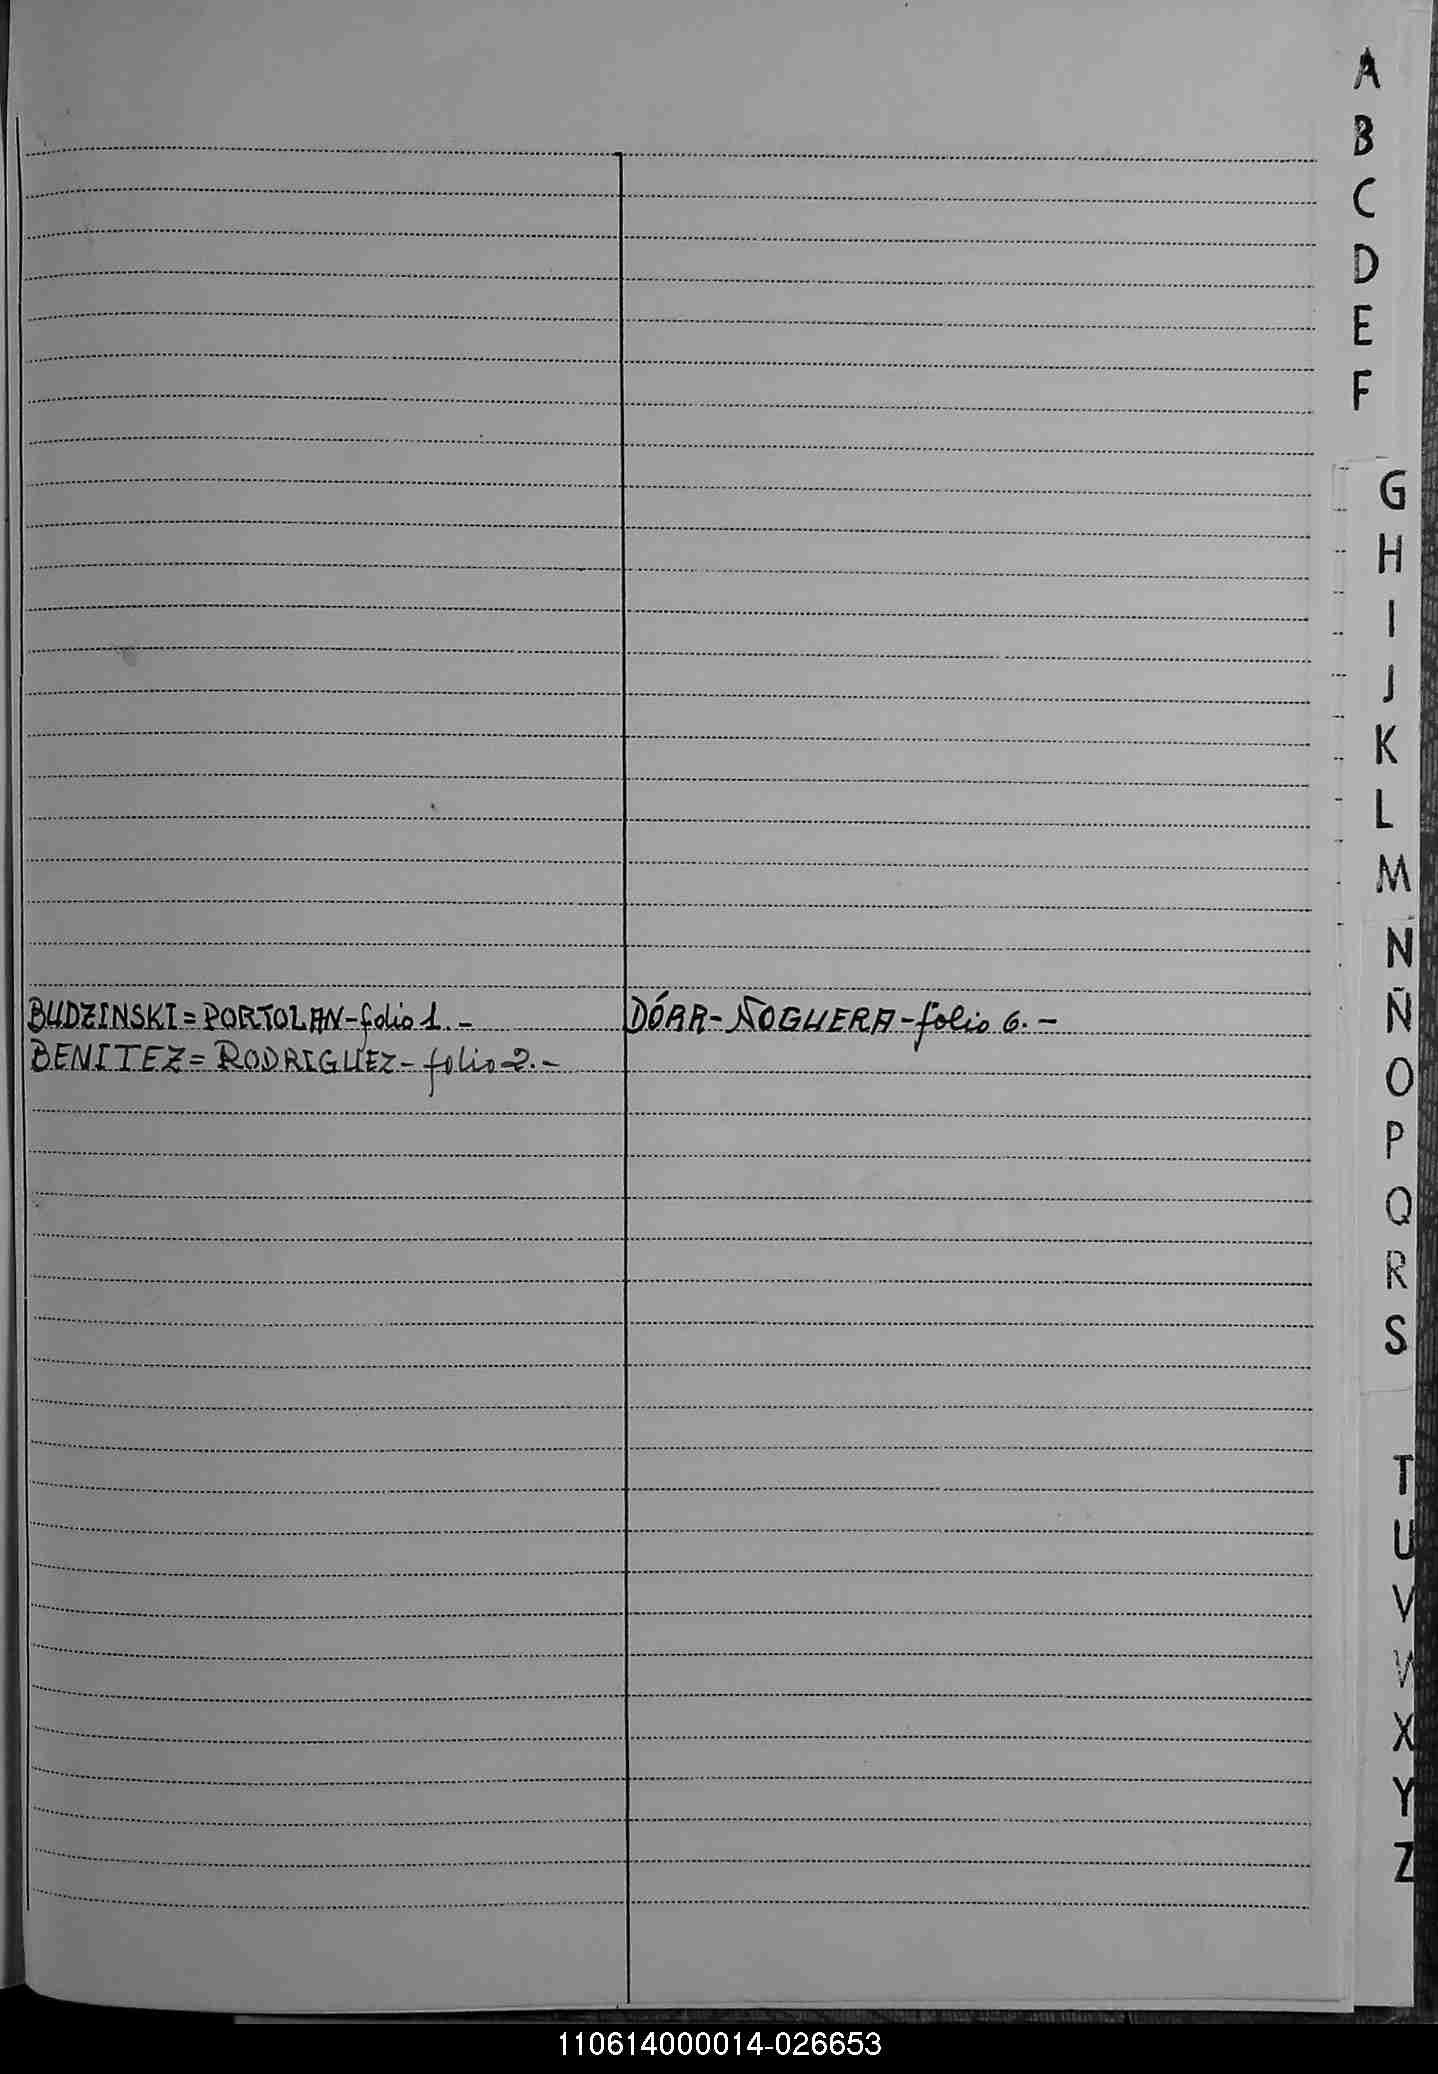 A
B
C
D
E
F
G
H
I
J
K
L
M
N
Ñ
O
P
Q
R
S
T
U
V
W
X
Y
Z
BUDZINSKI=PORTOLAN-folio 1.-
BENITEZ=RODRIGUEZ-folio 2.-
DÓRR-ÑOGUERA-folio 6.-
110614000014-026653